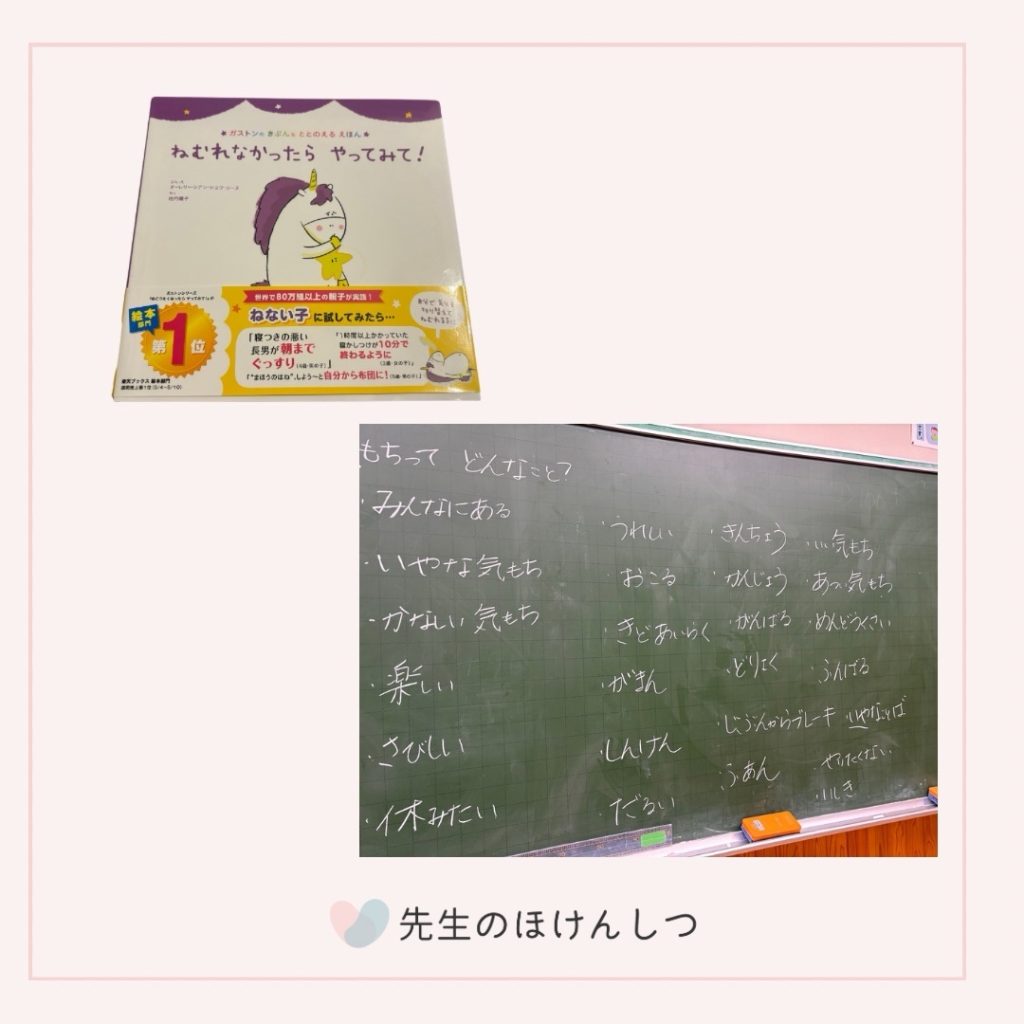 ★ガストンの きぶんを ととのえる えほん★
ねむれなかったら やってみて!
世界で80万組以上の親子が実践!
ねない子に試してみたら…
絵本
部門
第1位
「寝つきの悪い
長男が朝まで
ぐっすり(4歳・男の子)」
「1時間以上かかっていた
寝かしつけが10分で
終わるように
「"まほうのはね"、しよう〜と自分から布団に!
楽天ブックス 絵本部門
もちって どんなこと?
・みんなにある
・いやな気もち
・かなしい気もち
・楽しい
・さびしい
・休みたい
・うれしい
・おこる
・きどあいらく
・がまん
・しんけん
・だるい
・きんちょう
・かんじょう
・がんばる
・どりょく
・じぶんからブレーキ
・ふあん
・いい気もち
・あつい気もち
・めんどうくさい
・ふんばる
いやなことば
・やりたくない
・いしき
先生のほけんしつ